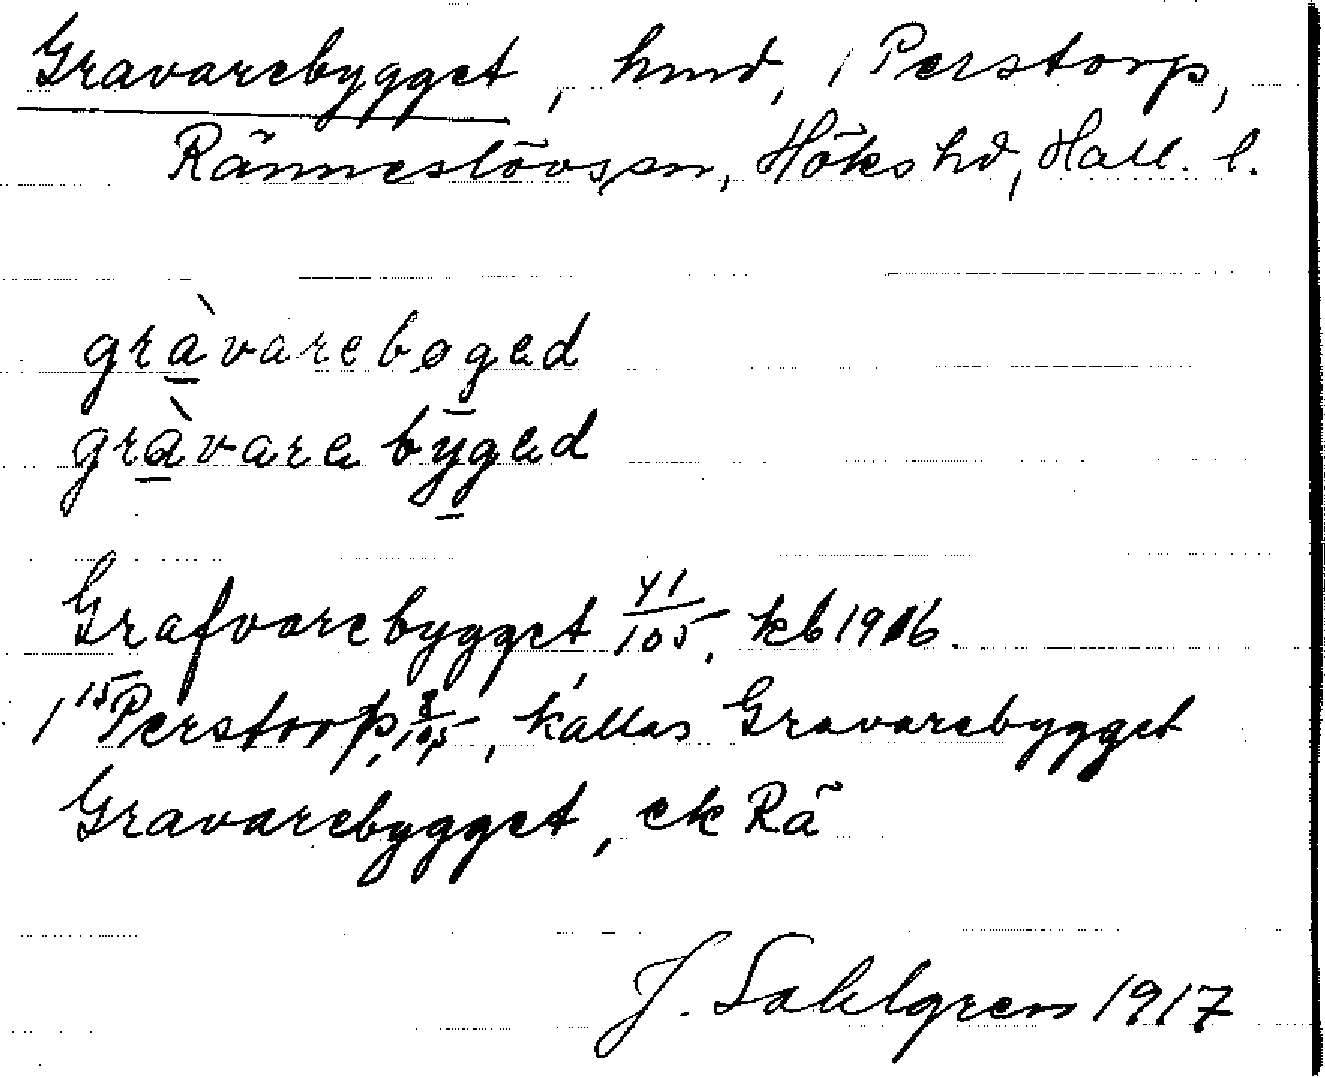 Gravarebygget, hmd, 1 Perstorp,
Ränneslövs sn, Höks hd, Hall. l.
gràvarebøged
gràvarebyged
Grafvarebygget, 41/105, kb 1916.
1 15 Perstorp, 8/105, kallas Gravarebygget
Gravarebygget, ek Rä
J. Sahlgren 1917